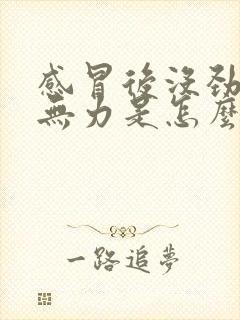 感冒後沒勁
無力是怎麼
一路追夢